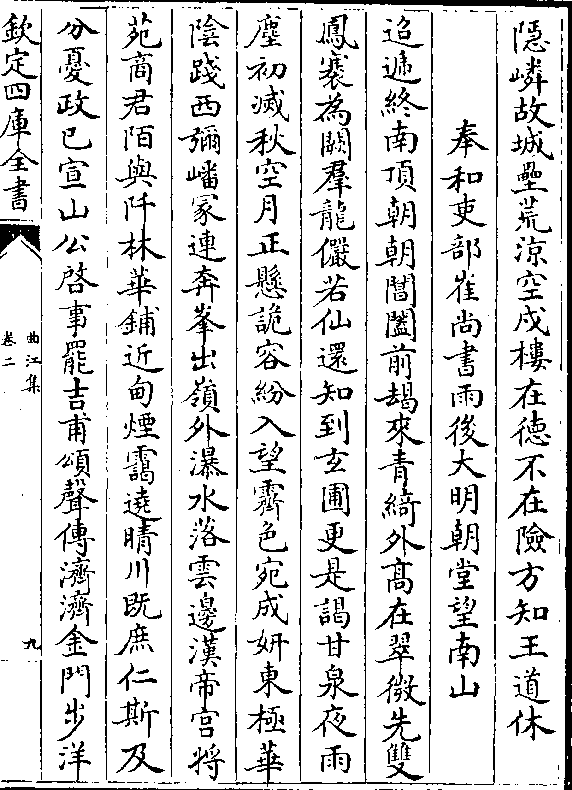 隠嶙故城壘荒涼空戍樓在德不在險方知王道休
奉和吏部崔尚書雨後大明朝堂望南山
迢遞終南頂朝朝閶闔前朅來青綺外髙在翠微先雙
鳳褰為闕羣龍儼若仙還知到玄圃更是謁甘泉夜雨
塵初滅秋空月正懸詭容紛入望霽色宛成妍東極華
陰踐西彌嶓冡連奔峯出嶺外瀑水落雲邊漢帝宫將
苑商君陌與阡林華鋪近甸煙靄遶晴川旣庶仁斯及
分憂政已宣山公啓事罷吉甫頌聲傳濟濟金門步洋
欽定四庫全書
曲江集
卷二
九